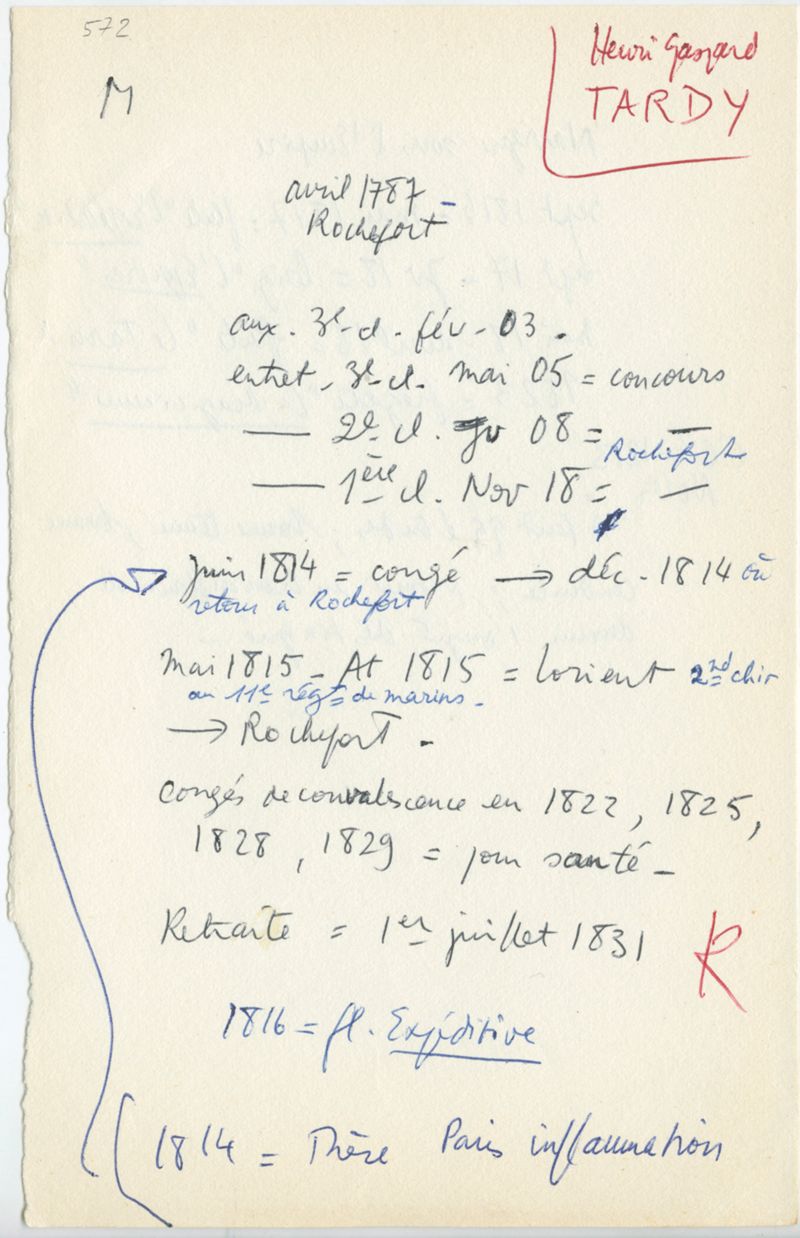 572
M
Henri Gaspard
TARDY
avril 1787 -
Rochefort
aux. 3e cl. fév. 03.
entret. 3e cl. mai 05 = concours
— 2e cl. Jv 08 = —
Rochefort
— 1ère cl. Nov 18 = —
Juin 1814 = congé → déc. 1814 où
retour à Rochefort
Mai 1815 - At 1815 = Lorient 2nd chir
au 11e régt de marins.
→ Rochefort.
Congés de convalescence en 1822, 1825,
1828, 1829 = pour santé -
Retraite = 1er juillet 1831
R
1816 = fl. Expéditive
1814 = Thèse Paris inflammation